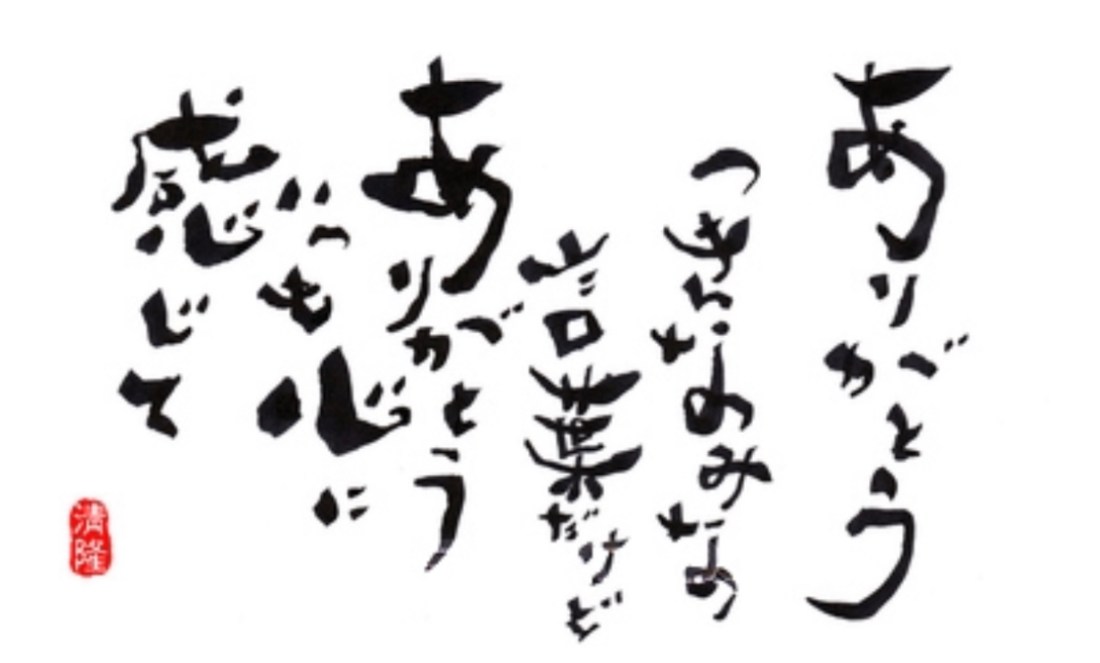 ありがとう
つきなみな
言葉だけど
ありがとう
いつも心に
感じて
清隆